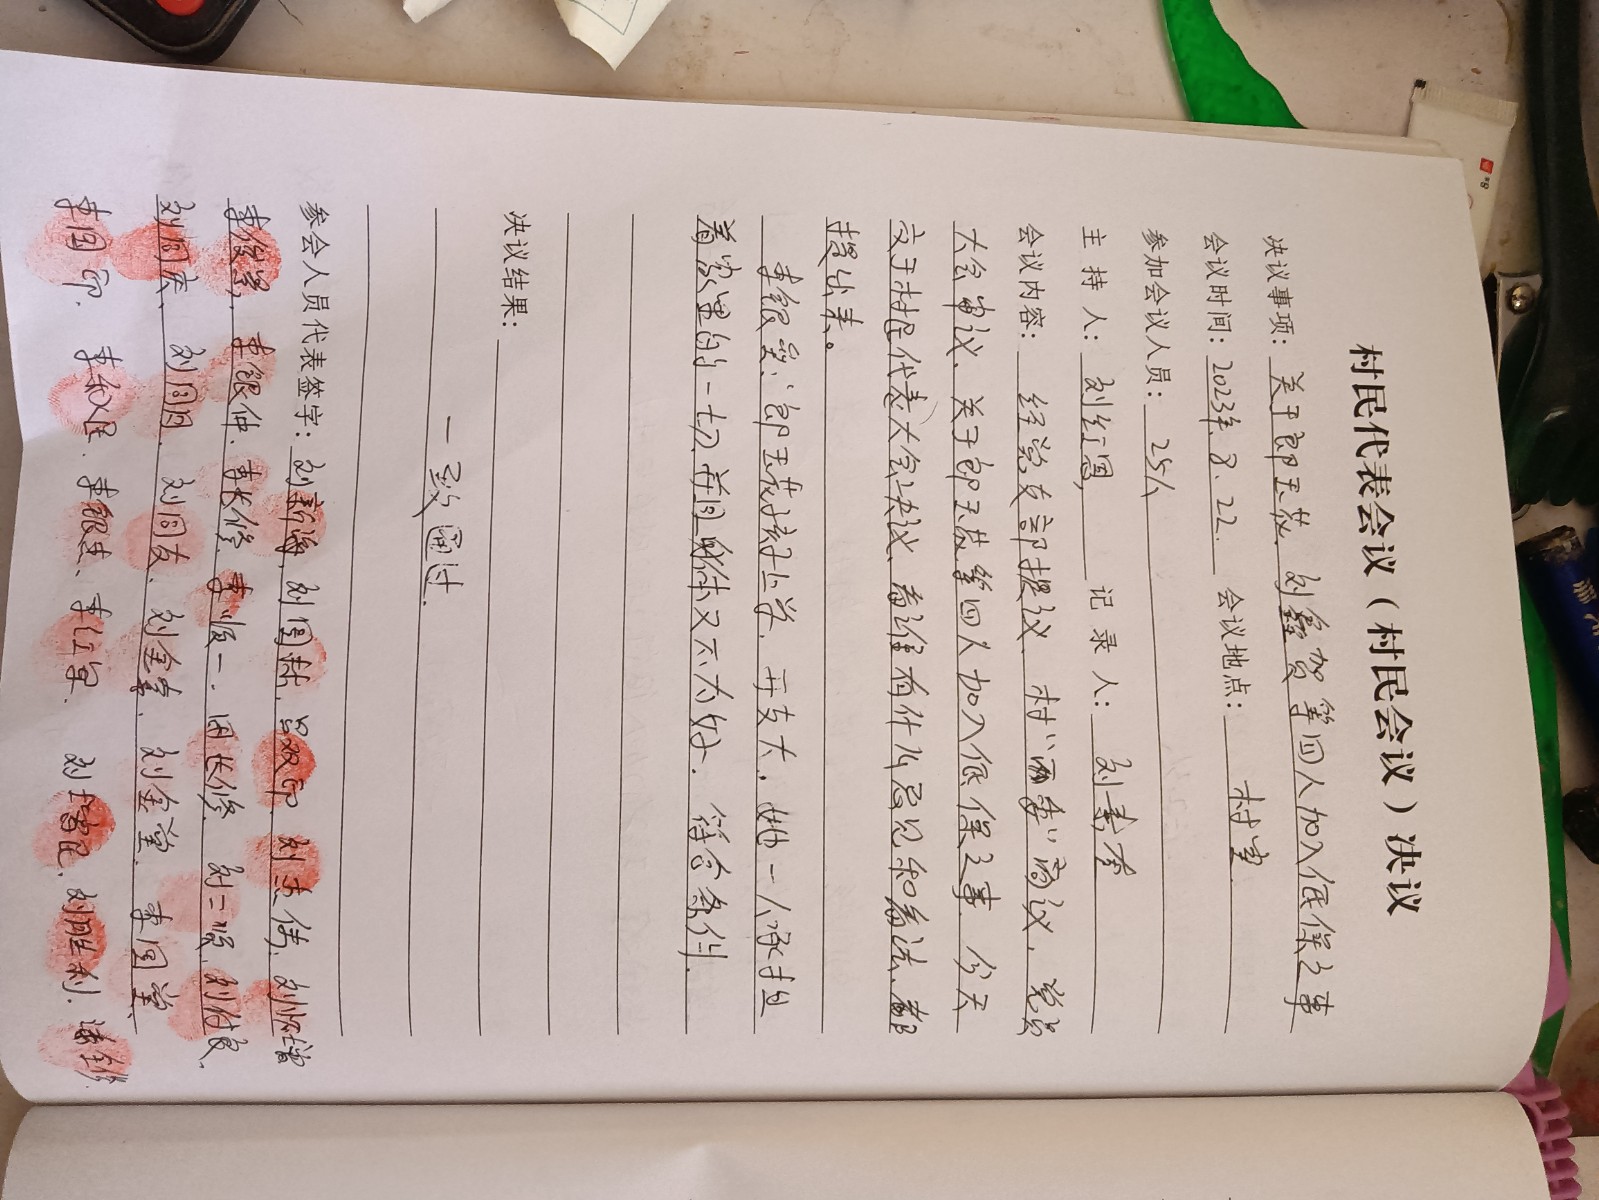 村民代表会议（村民会议）决议
决议事项：关于郎玉花、刘鑫贺等四人加入低保之事
会议时间：2023年.8.22. 会议地点：村室
参加会议人员：25人
主持人：刘红恩 记录人：刘素
会议内容：经党支部提议、村“两委”商议、党员
大会审议、关于郎玉花等四人加入低保之事 今天
交于村民代表大会决议、看谁有什么意见和看法、都
提出来。
李银：郎玉花孩子上学、开支大，她一人承担
着家里的一切，又不为好，符合条件.
决议结果：
一致通过.
参会人员代表签字：刘新海、刘国、双印、刘杰伟、刘
李俊、李银仲、李长修、李顺一、周长修、刘二顺、刘付良、
刘同庆、刘同、刘同友、刘金、刘金堂、李同堂、
李国印、李民、李银忠、李红军、刘增民、刘胜利、